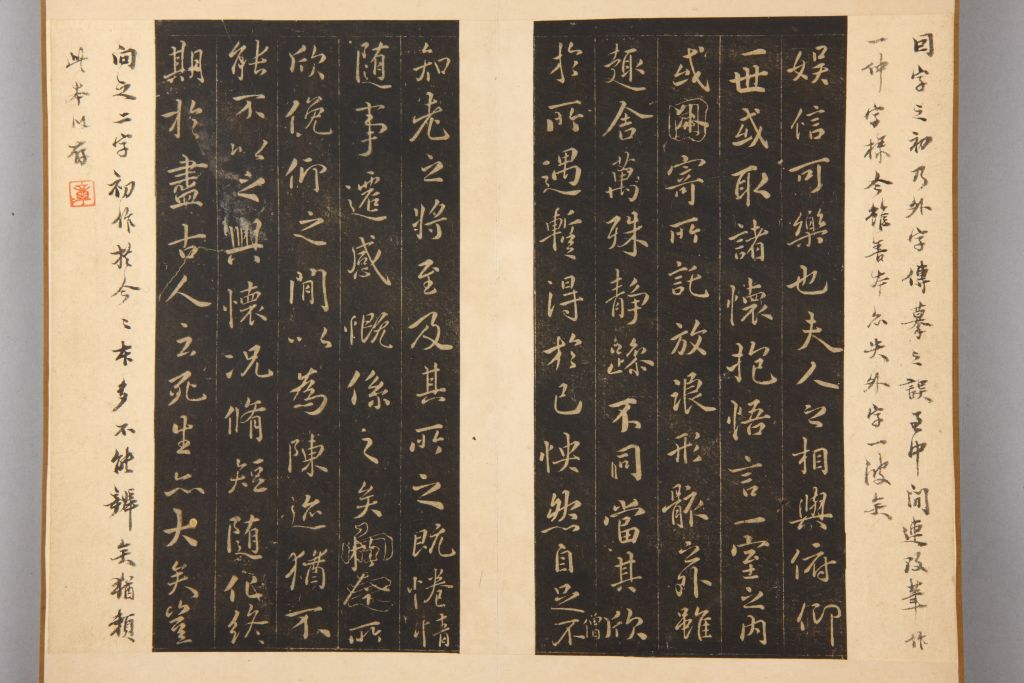 囙字之初乃外字傳摹之誤至中間連改筆作
一仲字樣今雖善本亦失外字一波矣
娛信可樂也夫人之相與俯仰
一世或取諸懷抱悟言一室之內
或因寄所託放浪形骸之外雖
趣舍萬殊靜躁不同當其欣
於所遇蹔得於己怏然自足不
僧
知老之將至及其所之既惓情
随事遷感慨係之矣向之所
欣俛仰之間以為陳迹猶不
能不以之興懷況脩短随化終
期於盡古人云死生亦大矣豈
向之二字初作於今〻本多不能辨矣猶賴
此本以存